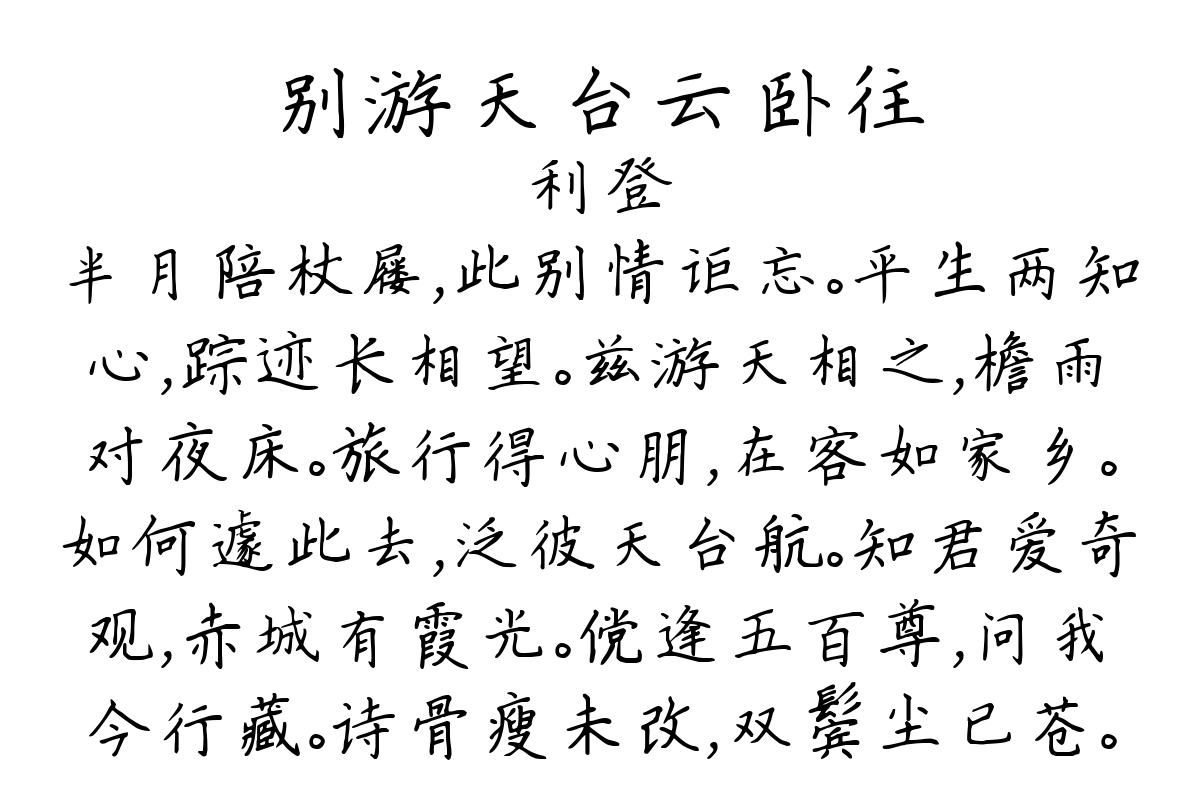 别游天台云卧往
利登
半月陪杖屦,此别情讵忘。平生两知
心,踪迹长相望。兹游天相之,檐雨
对夜床。旅行得心朋,在客如家乡。
如何遽此去,泛彼天台航。知君爱奇
观,赤城有霞光。傥逢五百尊,问我
今行藏。诗骨瘦未改,双鬓尘已苍。